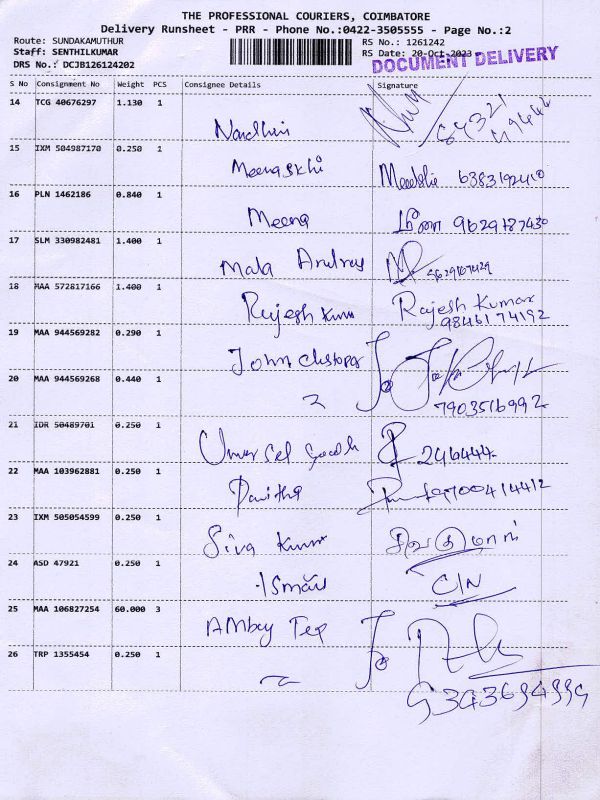 THE PROFESSIONAL COURIERS, COIMBATORE
Delivery Runsheet - PRR - Phone No.:0422-3505555 - Page No.:2
Route: SUNDAKAMUTHUR RS No.: 1261242
Staff: SENTHILKUMAR RS Date: 20-Oct-2023
DRS No.: DCJB126124202 DOCUMENT DELIVERY
S No Consignment No Weight PCS Consignee Details Signature
14 TCG 40676297 1.130 1
64321
Nandhini
15 IXM 504987170 0.250 1
Meenaskhi 6383192410
16 PLN 1462186 0.840 1
Meena மீனா 9629187430
17 SLM 330982481 1.400 1
Mala Andrews
18 MAA 572817166 1.400 1
Rajesh Kumar Rajesh Kumar
9846174192
19 MAA 944569282 0.290 1
John
20 MAA 944569268 0.440 1
7903516992
21 IDR 50489701 0.250 1
246444
22 MAA 103962881 0.250 1
Pavithra
23 IXM 505054599 0.250 1
Siva Kumar சிவகுமார்
24 ASD 47921 0.250 1
Ismail C/N
25 MAA 106827254 60.000 3
26 TRP 1355454 0.250 1